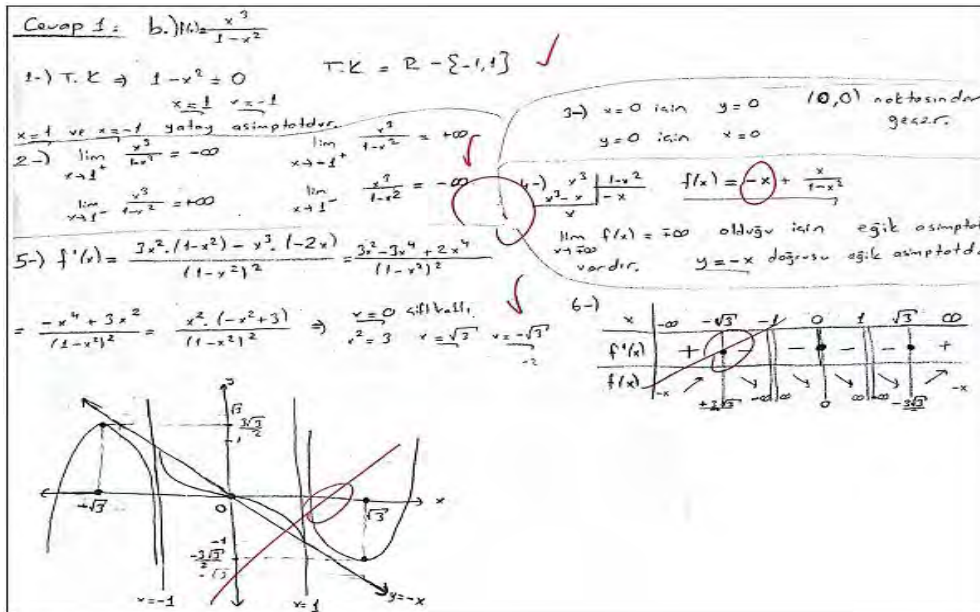 Cevap 1: b.) f(x) = x³/(1-x²)
1-) T.K ⇒ 1-x² = 0 T.K = R - {-1,1} ✓
x=1 x=-1
x=1 ve x=-1 yatay asimptotdur.
2-) lim x→1⁺ x³/(1-x²) = -∞ lim x→-1⁺ x³/(1-x²) = +∞
lim x→1⁻ x³/(1-x²) = +∞ lim x→1⁻ x³/(1-x²) = -∞
3-) x=0 için y=0 (0,0) noktasından geçer.
y=0 için x=0
4-) x³ | 1-x² f(x) = -x + x/(1-x²)
x³-x | -x
x
lim x→∓∞ f(x) = ∓∞ olduğu için eğik asimptot
vardır. y=-x doğrusu eğik asimptotd
5-) f'(x) = (3x².(1-x²) - x³.(-2x))/(1-x²)² = (3x²-3x⁴+2x⁴)/(1-x²)²
= (-x⁴+3x²)/(1-x²)² = x².(-x²+3)/(1-x²)² ⇒ x=0
x²=3 x=√3 x=-√3
6-)
x -∞ -√3 -1 0 1 √3 ∞
f'(x) + - - - +
f(x) -x ↗ ↘ -∞ ∞ ↘ 0 ↘ ∞ ↘ -3√3/2 ↗ -x
y
√3
3√3/2
1
-√3 0 √3 x
-1
-3√3/2
-√3
x=-1 x=1 y=-x